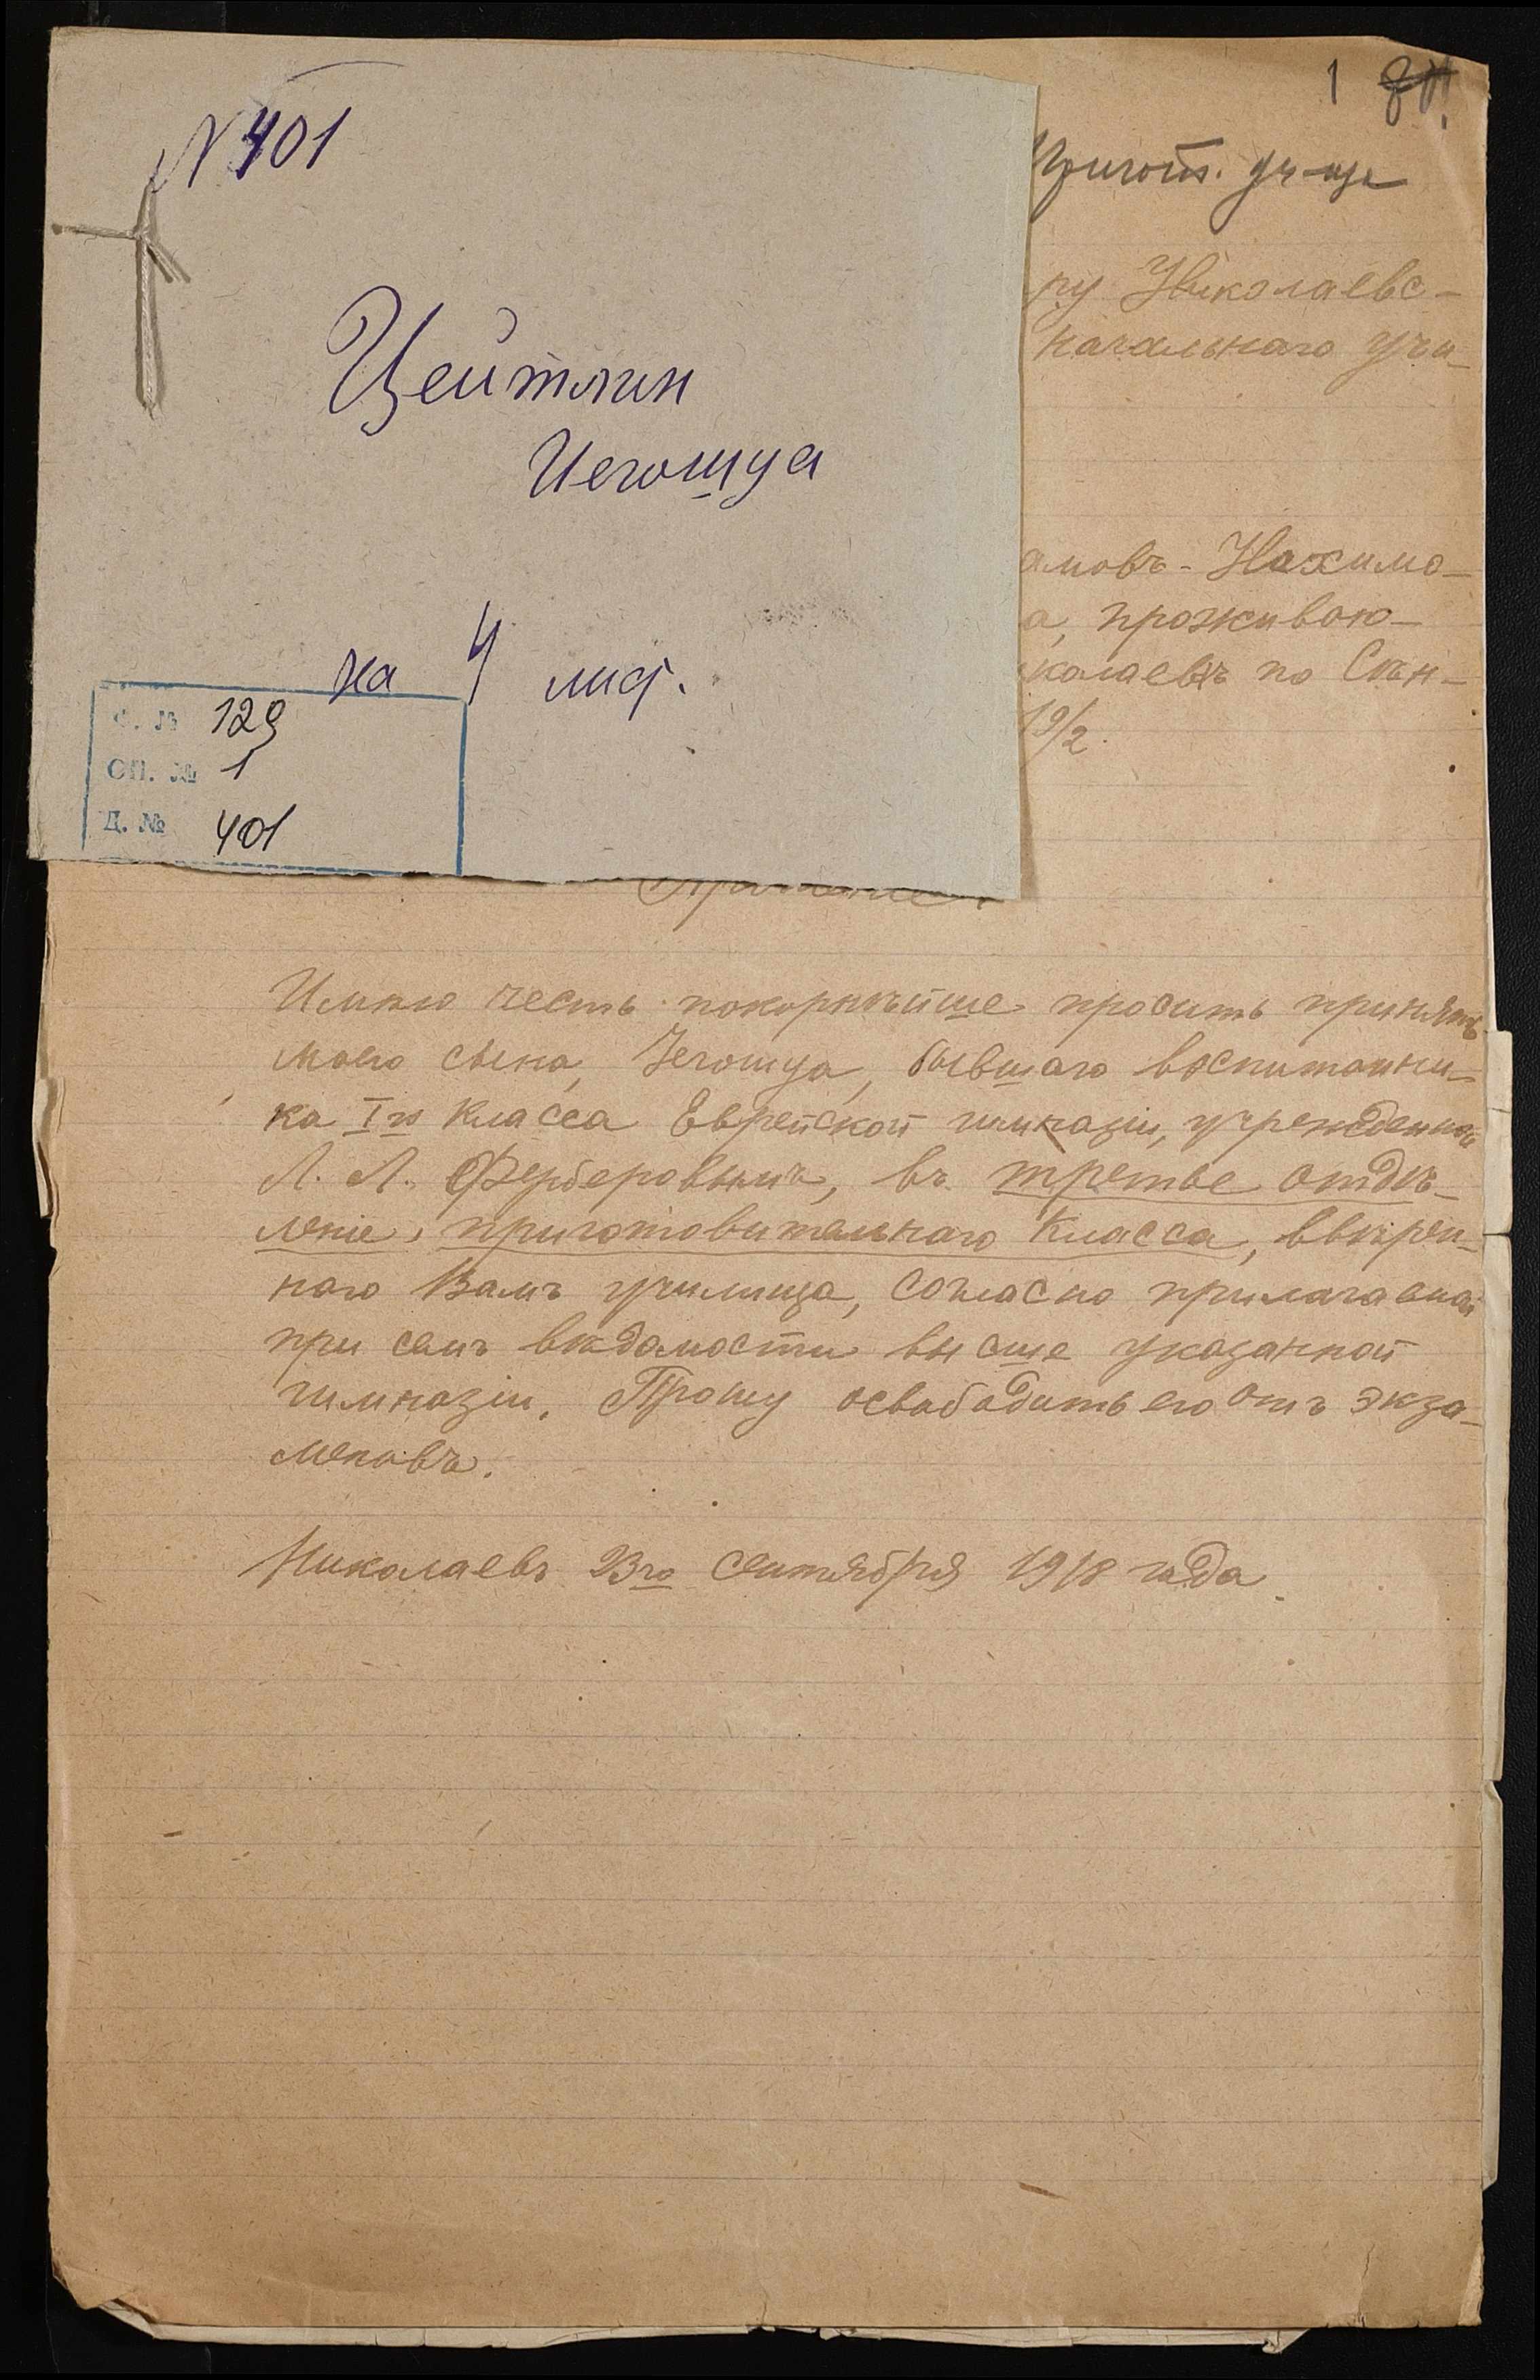 N 401
Цейтлин
Иегошуа
на 4 лист.
Ф. № 129
ОП. № 1
Д. № 401
1
Пригот. уч-ще
ру Николаевс-
начальнаго учи-
амовъ-Нахимо-
а, проживаю-
колаевѣ по Сѣн-
19/2.
Прошение.
Имѣю честь покорнѣйше просить принять
моего сына, Іегошуа, бывшаго воспитанни-
ка I го класса Еврейской гимназіи, учрежденной
Л. Л. Ферберовымъ, въ третье отдѣ-
леніе, приготовительнаго класса, ввѣрен-
наго Вамъ училища, согласно прилагаемой
при семъ вѣдомости высше указанной
гимназіи. Прошу освабадить его отъ экза-
меновъ.
Николаевъ 23го сентября 1918 года.